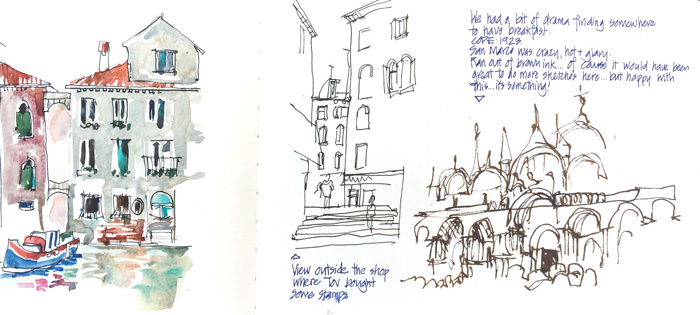 We had a bit of drama finding somewhere
to have breakfast.
COPE: 1923
San Marco was crazy, hot + glary.
Ran out of brown ink... of course it would have been
great to do more sketches here... but happy with
this... its something!
View outside the shop
where bought
some stamps